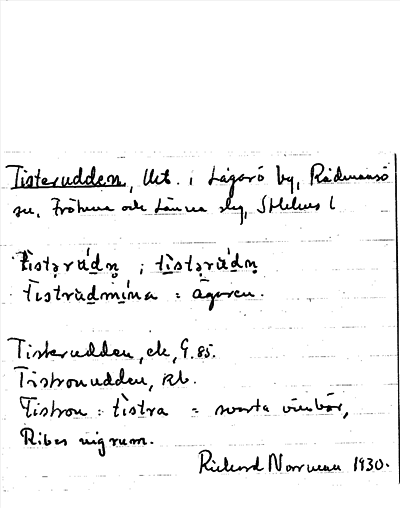 Tisterudden, Urt. i Lågarö by, Rådmansö
sn, Frötuna och Länna slg, Sthlms l
tistərʉ́dn̥ ; tìstərʉ́dn̥
Tistrʉdmína = ägaren.
Tisterudden, ek, G. 85.
Tistronudden, Rb.
Tistron : tistra = svarta vinbär,
Ribes nigrum.
Rickard Norrman 1930.